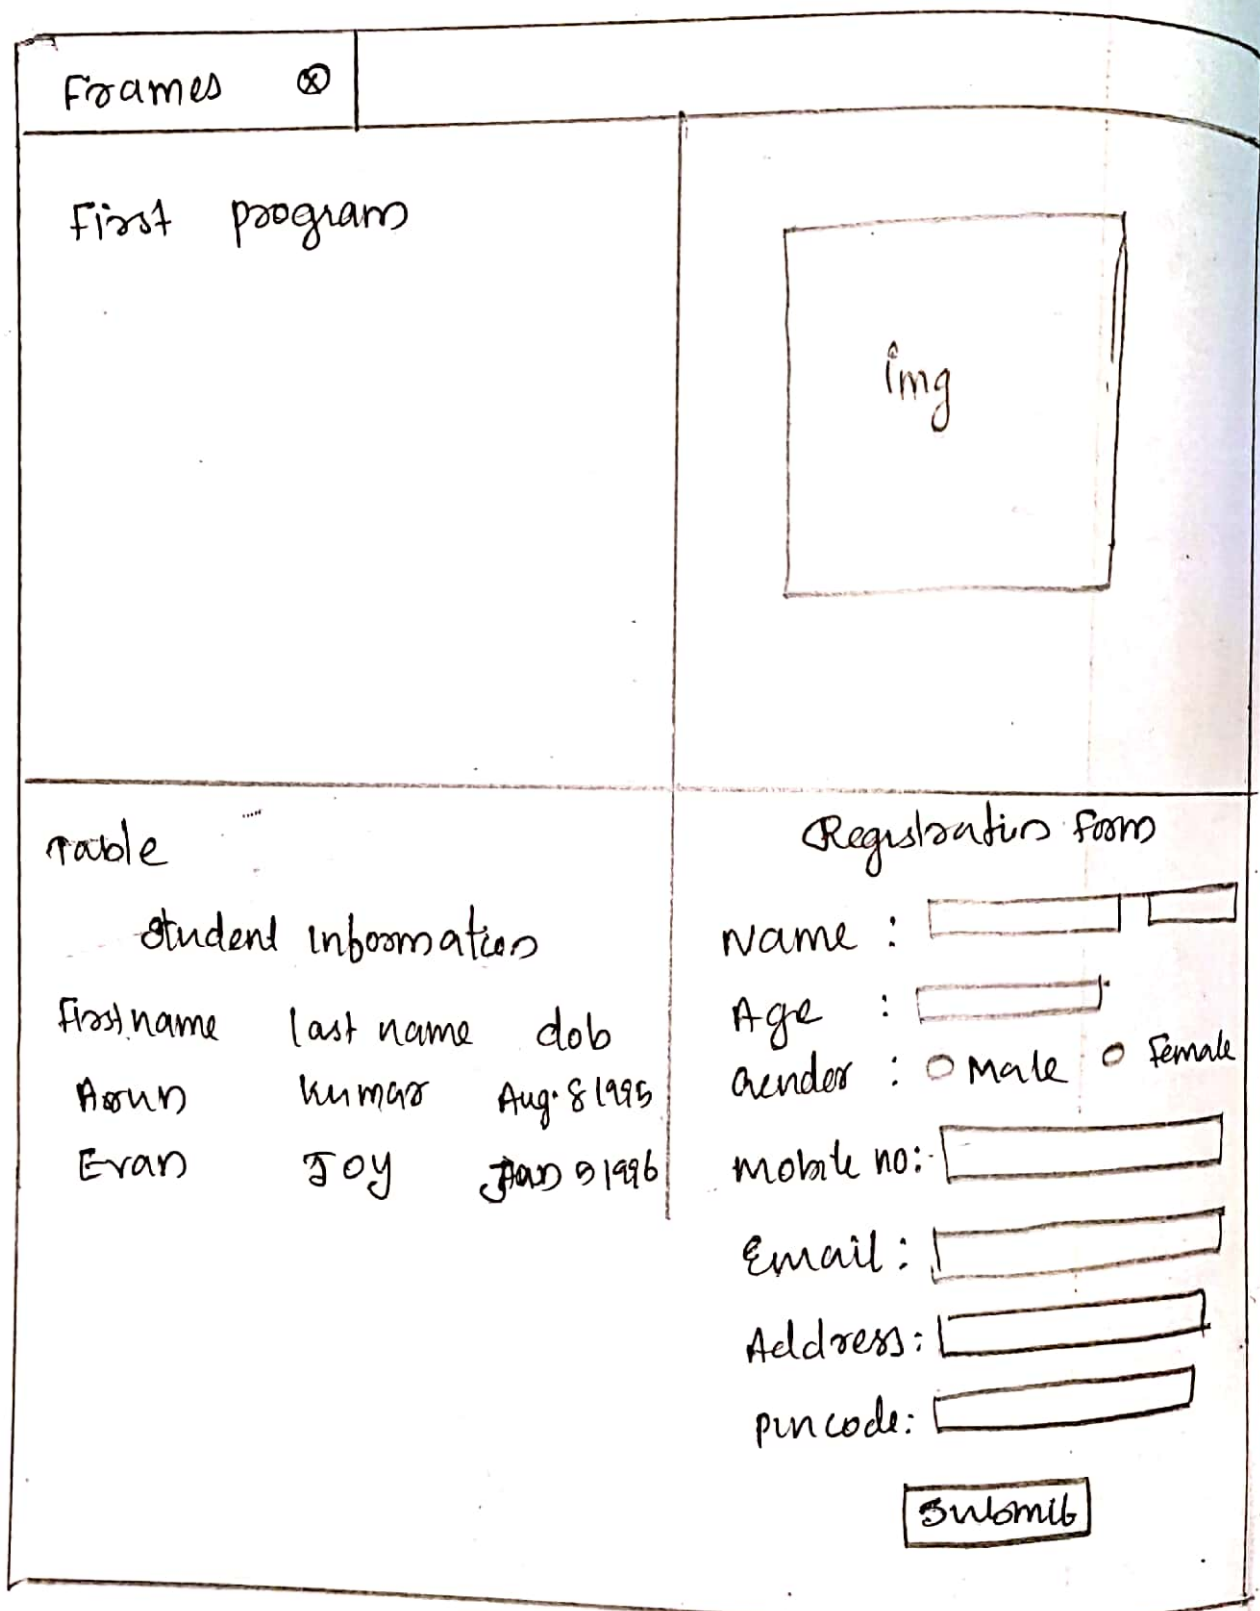 Frames ⓧ
First program
img
Table
Student Information
First name last name dob
Arun Kumar Aug. 8 1995
Evan Joy Jan 5 1996
Registration form
Name :
Age :
Gender : Male Female
Mobile no:
Email :
Address:
Pincode:
Submit